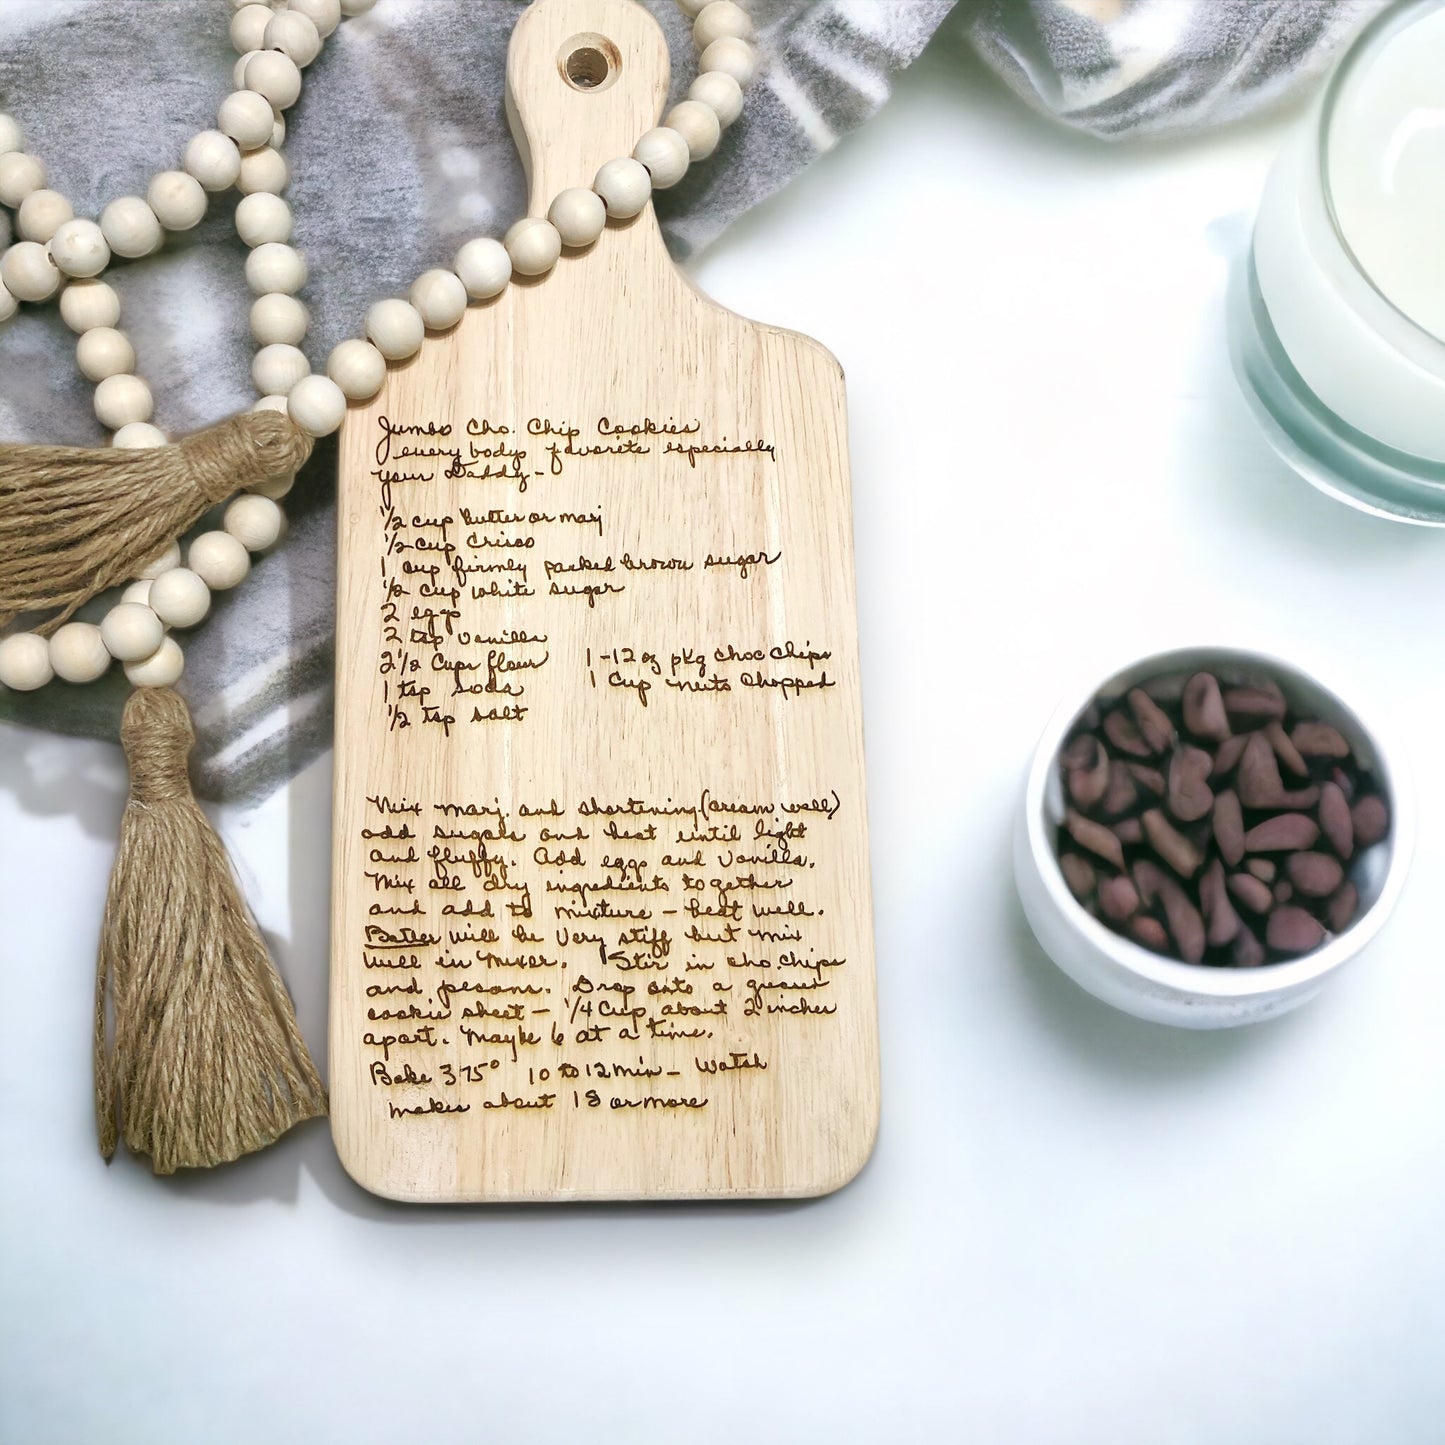 Jumbo Cho. Chip Cookies
every bodys favorite especially
your Daddy-
1/2 cup butter or marj
1/2 cup Crisco
1 cup firmly packed brown sugar
1/2 cup white sugar
2 eggs
2 tsp vanilla
2 1/2 Cups flour 1-12 oz pkg choc chips
1 tsp soda 1 Cup nuts chopped
1/2 tsp salt
Mix marj. and shortening (cream well)
add sugars and beat until light
and fluffy. Add eggs and vanilla.
Mix all dry ingredients together
and add to mixture - beat well.
Batter will be very stiff but mix
well in mixer. Stir in cho. chips
and pecans. Drop onto a greased
cookie sheet - 1/4 Cup about 2 inches
apart. Maybe 6 at a time.
Bake 375° 10 to 12 min - Watch
makes about 18 or more